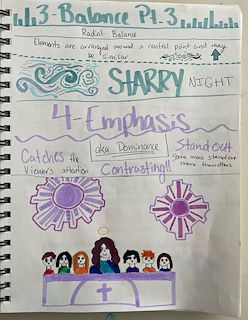 3-Balance Pt. 3
Radial Balance
Elements are arranged around a central point and may
be similar
STARRY NIGHT
4-Emphasis
Catches the
Viewers attention
aka Dominance
Contrasting!!
Stand out
Some areas standout
more than others